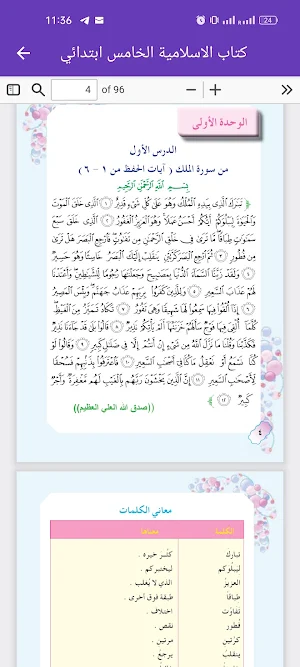 11:36
24
كتاب الاسلامية الخامس ابتدائي
4 of 96
الوحدة الأولى
الدرس الأول
من سورة الملك ( آيات الحفظ من ١ - ٦ )
بِسْمِ اللَّهِ الرَّحْمَٰنِ الرَّحِيمِ
تَبَٰرَكَ الَّذِي بِيَدِهِ الْمُلْكُ وَهُوَ عَلَىٰ كُلِّ شَيْءٍ قَدِيرٌ ١ الَّذِي خَلَقَ الْمَوْتَ
وَالْحَيَوٰةَ لِيَبْلُوَكُمْ أَيُّكُمْ أَحْسَنُ عَمَلًا وَهُوَ الْعَزِيزُ الْغَفُورُ ٢ الَّذِي خَلَقَ سَبْعَ
سَمَٰوَٰتٍ طِبَاقًا مَّا تَرَىٰ فِي خَلْقِ الرَّحْمَٰنِ مِن تَفَٰوُتٍ فَارْجِعِ الْبَصَرَ هَلْ تَرَىٰ
مِن فُطُورٍ ٣ ثُمَّ ارْجِعِ الْبَصَرَ كَرَّتَيْنِ يَنقَلِبْ إِلَيْكَ الْبَصَرُ خَاسِئًا وَهُوَ حَسِيرٌ
٤ وَلَقَدْ زَيَّنَّا السَّمَاءَ الدُّنْيَا بِمَصَٰبِيحَ وَجَعَلْنَٰهَا رُجُومًا لِّلشَّيَٰطِينِ وَأَعْتَدْنَا
لَهُمْ عَذَابَ السَّعِيرِ ٥ وَلِلَّذِينَ كَفَرُوا بِرَبِّهِمْ عَذَابُ جَهَنَّمَ وَبِئْسَ الْمَصِيرُ
٦ إِذَا أُلْقُوا فِيهَا سَمِعُوا لَهَا شَهِيقًا وَهِيَ تَفُورُ ٧ تَكَادُ تَمَيَّزُ مِنَ الْغَيْظِ
كُلَّمَا أُلْقِيَ فِيهَا فَوْجٌ سَأَلَهُمْ خَزَنَتُهَا أَلَمْ يَأْتِكُمْ نَذِيرٌ ٨ قَالُوا بَلَىٰ قَدْ جَاءَنَا نَذِيرٌ
فَكَذَّبْنَا وَقُلْنَا مَا نَزَّلَ اللَّهُ مِن شَيْءٍ إِنْ أَنتُمْ إِلَّا فِي ضَلَٰلٍ كَبِيرٍ ٩ وَقَالُوا لَوْ
كُنَّا نَسْمَعُ أَوْ نَعْقِلُ مَا كُنَّا فِي أَصْحَٰبِ السَّعِيرِ ١٠ فَاعْتَرَفُوا بِذَنبِهِمْ فَسُحْقًا
لِّأَصْحَٰبِ السَّعِيرِ ١١ إِنَّ الَّذِينَ يَخْشَوْنَ رَبَّهُم بِالْغَيْبِ لَهُم مَّغْفِرَةٌ وَأَجْرٌ
كَبِيرٌ ١٢
((صدق الله العلي العظيم))
٤
معاني الكلمات
الكلمة معناها
تبارك كثُرَ خيره .
ليبلُوكم ليختبركم .
العزيز الذي لا يُغلب .
طباقاً طبقة فوق أخرى .
تفاوُت اختلاف .
فُطور نقص .
كرّتين مرتين .
ينقلبْ يرجعُ .